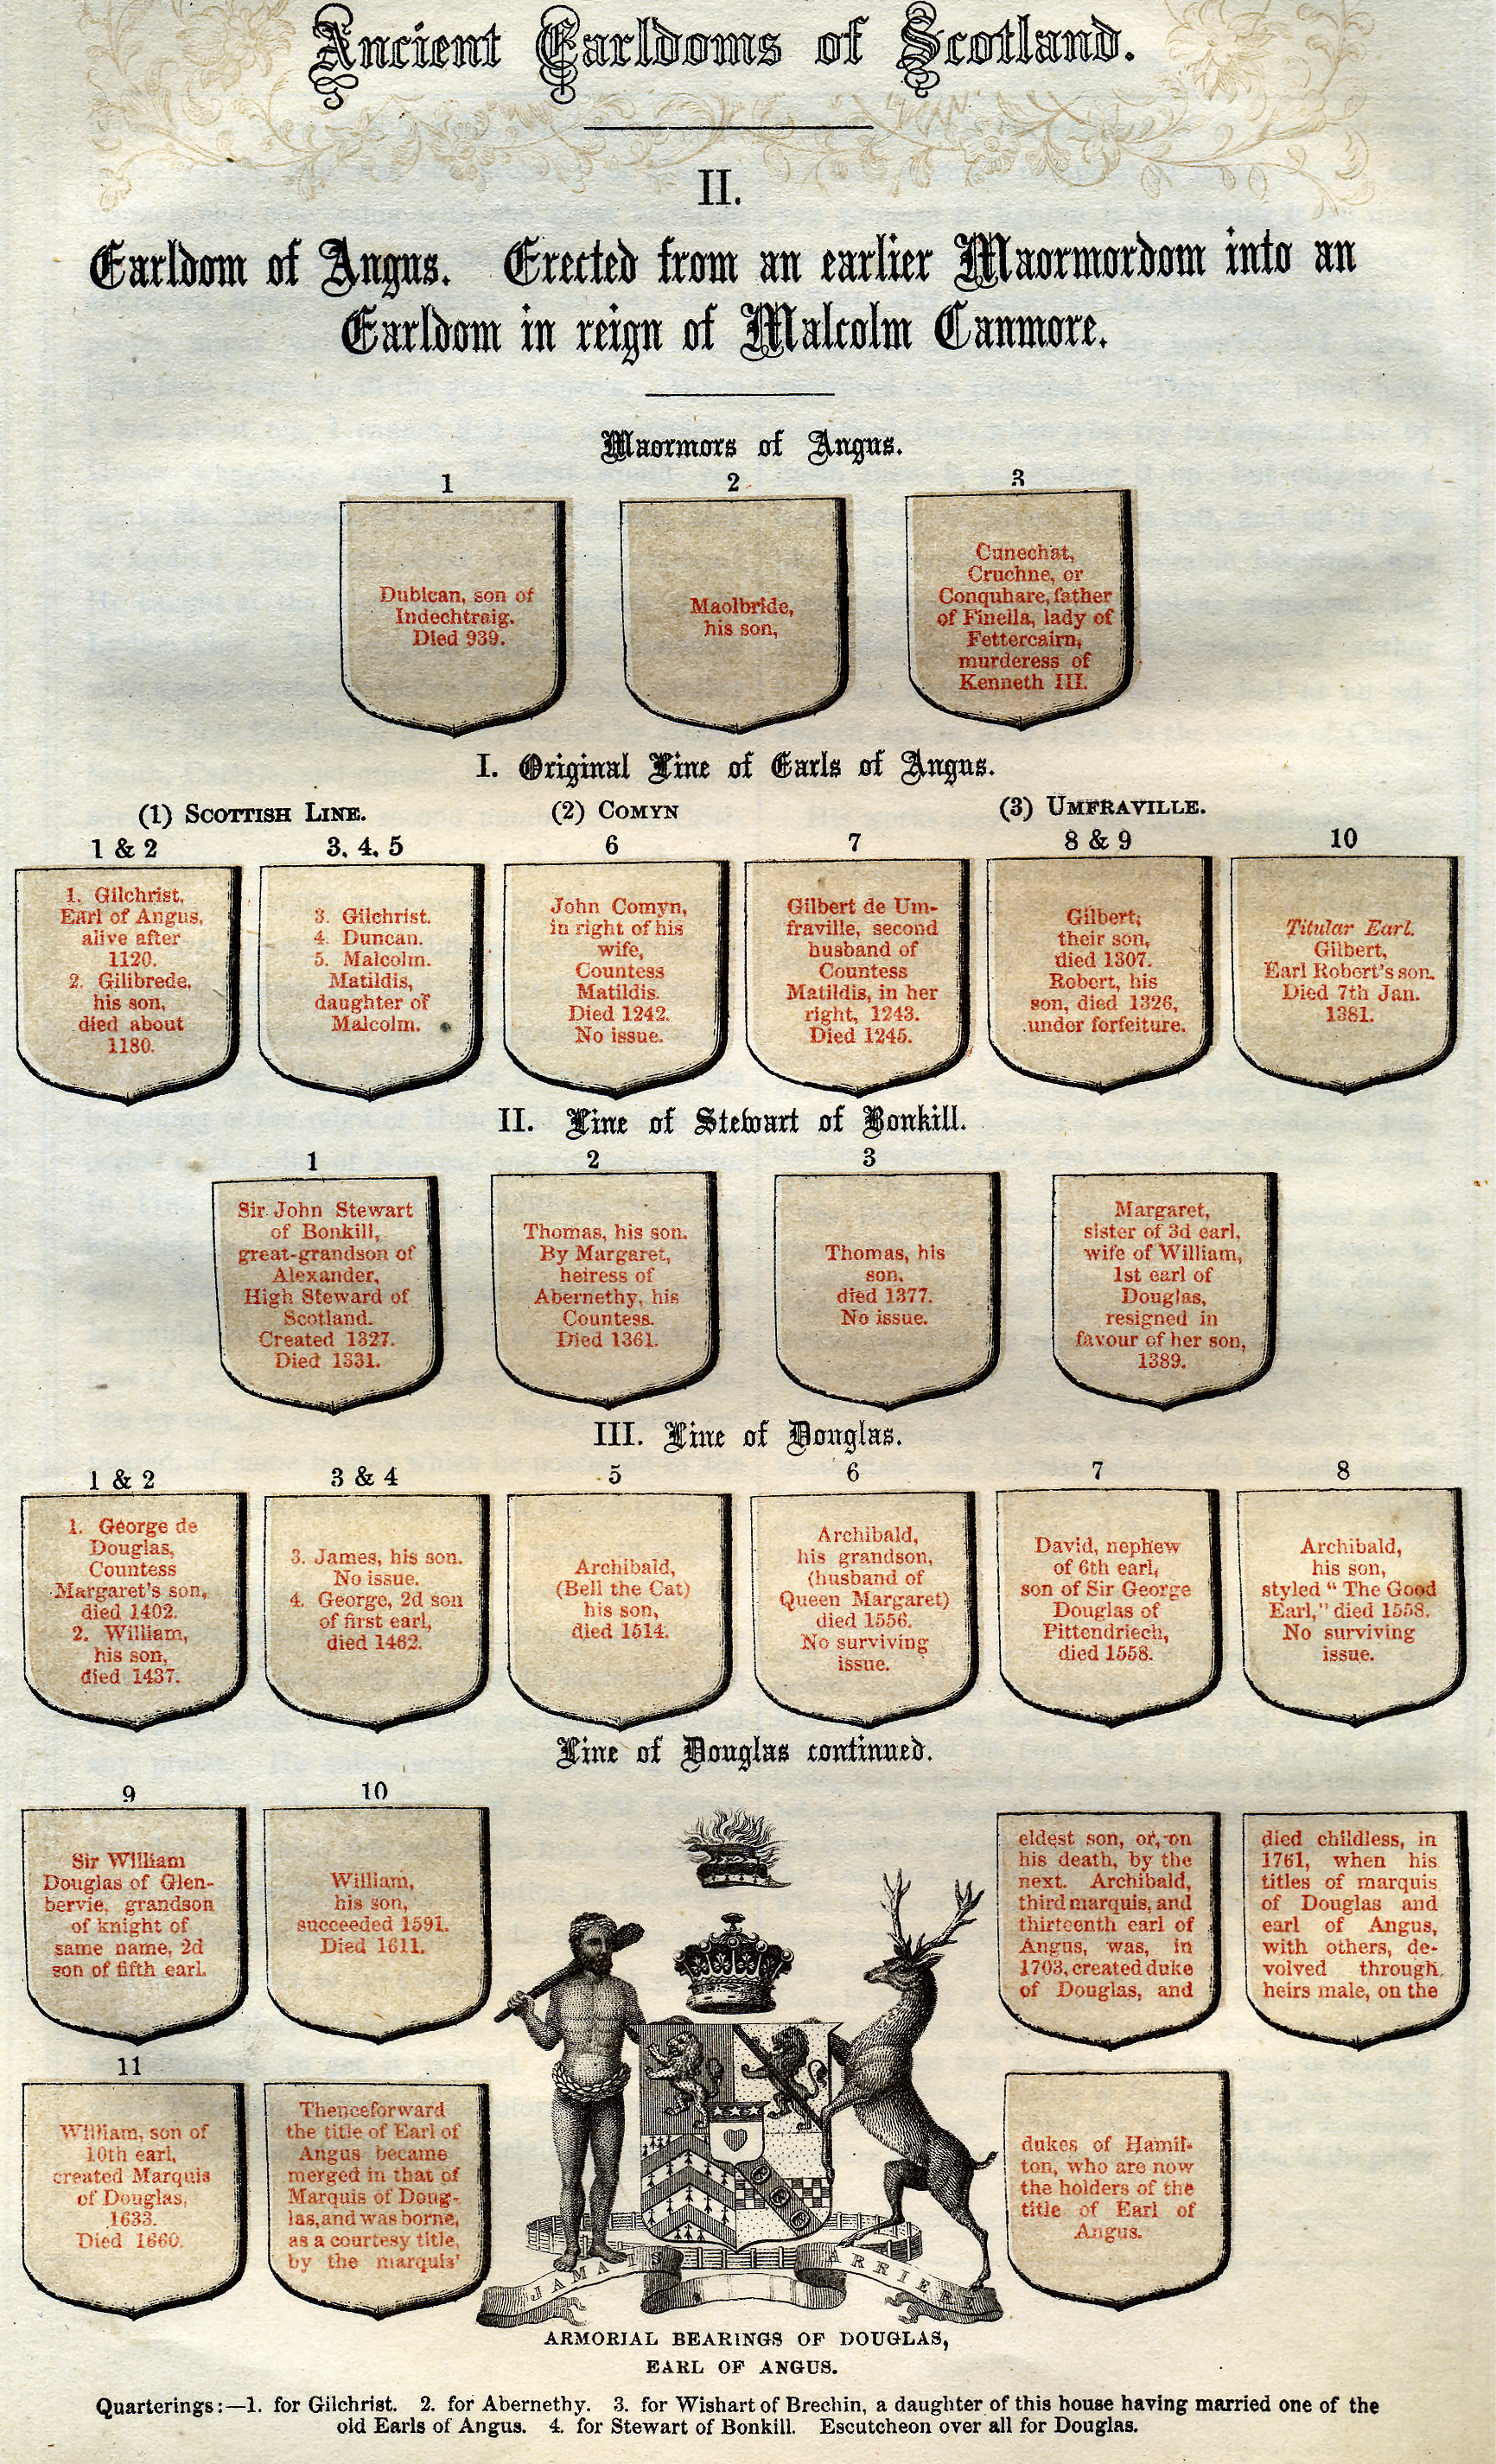 Ancient Earldoms of Scotland.
II.
Earldom of Angus. Erected from an earlier Maormordom into an
Earldom in reign of Malcolm Canmore.
Maormors of Angus.
1
Dubican, son of
Indechtraig.
Died 939.
2
Maolbride,
his son,
3
Cunechat,
Cruchne, or
Conquhare, father
of Finella, lady of
Fettercairn,
murderess of
Kenneth III.
I. Original Line of Earls of Angus.
(1) SCOTTISH LINE.
(2) COMYN
(3) UMFRAVILLE.
1 & 2
1. Gilchrist,
Earl of Angus,
alive after
1120.
2. Gilibrede,
his son,
died about
1180.
3. 4. 5
3. Gilchrist.
4. Duncan.
5. Malcolm.
Matildis,
daughter of
Malcolm.
6
John Comyn,
in right of his
wife,
Countess
Matildis.
Died 1242.
No issue.
7
Gilbert de Um-
fraville, second
husband of
Countess
Matildis, in her
right, 1243.
Died 1245.
8 & 9
Gilbert,
their son,
died 1307.
Robert, his
son, died 1326,
under forfeiture.
10
Titular Earl.
Gilbert,
Earl Robert's son.
Died 7th Jan.
1381.
II. Line of Stewart of Bonkill.
1
Sir John Stewart
of Bonkill,
great-grandson of
Alexander,
High Steward of
Scotland.
Created 1327.
Died 1331.
2
Thomas, his son.
By Margaret,
heiress of
Abernethy, his
Countess.
Died 1361.
3
Thomas, his
son,
died 1377.
No issue.
Margaret,
sister of 3d earl,
wife of William,
1st earl of
Douglas,
resigned in
favour of her son,
1389.
III. Line of Douglas.
1 & 2
1. George de
Douglas,
Countess
Margaret's son,
died 1402.
2. William,
his son,
died 1437.
3 & 4
3. James, his son.
No issue.
4. George, 2d son
of first earl,
died 1462.
5
Archibald,
(Bell the Cat)
his son,
died 1514.
6
Archibald,
his grandson,
(husband of
Queen Margaret)
died 1556.
No surviving
issue.
7
David, nephew
of 6th earl,
son of Sir George
Douglas of
Pittendriech,
died 1558.
8
Archibald,
his son,
styled "The Good
Earl," died 1558.
No surviving
issue.
Line of Douglas continued.
9
Sir William
Douglas of Glen-
bervie, grandson
of knight of
same name, 2d
son of fifth earl.
10
William,
his son,
succeeded 1591.
Died 1611.
11
William, son of
10th earl,
created Marquis
of Douglas,
1633.
Died 1660.
Thenceforward
the title of Earl of
Angus became
merged in that of
Marquis of Doug-
las, and was borne,
as a courtesy title,
by the marquis'
eldest son, or, on
his death, by the
next. Archibald,
third marquis, and
thirteenth earl of
Angus, was, in
1703, created duke
of Douglas, and
died childless, in
1761, when his
titles of marquis
of Douglas and
earl of Angus,
with others, de-
volved through
heirs male, on the
dukes of Hamil-
ton, who are now
the holders of the
title of Earl of
Angus.
JAMAIS ARRIERE
ARMORIAL BEARINGS OF DOUGLAS,
EARL OF ANGUS.
Quarterings:—1. for Gilchrist. 2. for Abernethy. 3. for Wishart of Brechin, a daughter of this house having married one of the
old Earls of Angus. 4. for Stewart of Bonkill. Escutcheon over all for Douglas.